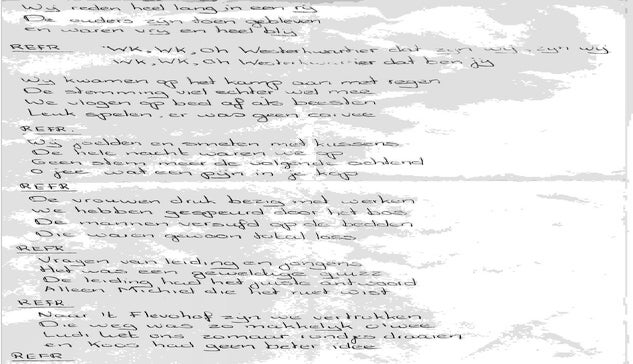 Wij reden heel lang in een rij
De ouders zijn toen gebleven
en waren vrij en heel blij
REFR "WK, WK, Oh Westerkwartier dat zijn wij, zijn wij
WK, WK, Oh Westerkwartier dat ben jij
Wij kwamen op het kamp aan met regen
De stemming viel echter wel mee
We vlogen op bed af als beesten
Leuk spelen, er was geen corvee
REFR.
Wij jodden en smeten met kussens
De hele nacht waren we op
Geen stem meer de volgende ochtend
O jee wat een pijn in je kop
REFR
De vrouwen druk bezig met werken
We hebben gespeurd door het bos
De mannen versuft op de bedden
Die waren gewoon totaal loss
REFR
Vragen van leiding en jongens
Het was een geweldige quizz
De leiding had het juiste antwoord
Alleen Michiel die het niet wist
REFR
Naar 't Flevohof zijn we vertrokken
Die weg was zo makkelijk o'wee
Ludi liet ons zomaar rondjes draaien
en Koos had geen beter idee
REFR